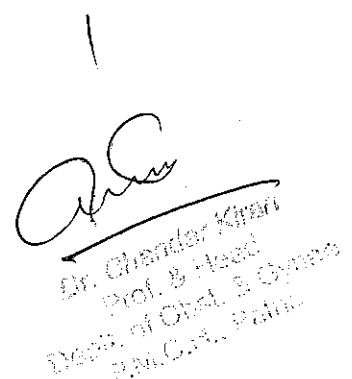 Dr. Chandar Kiran
Prof. & Head
Deptt. of Obst. & Gynae
P.M.C.H., Patna